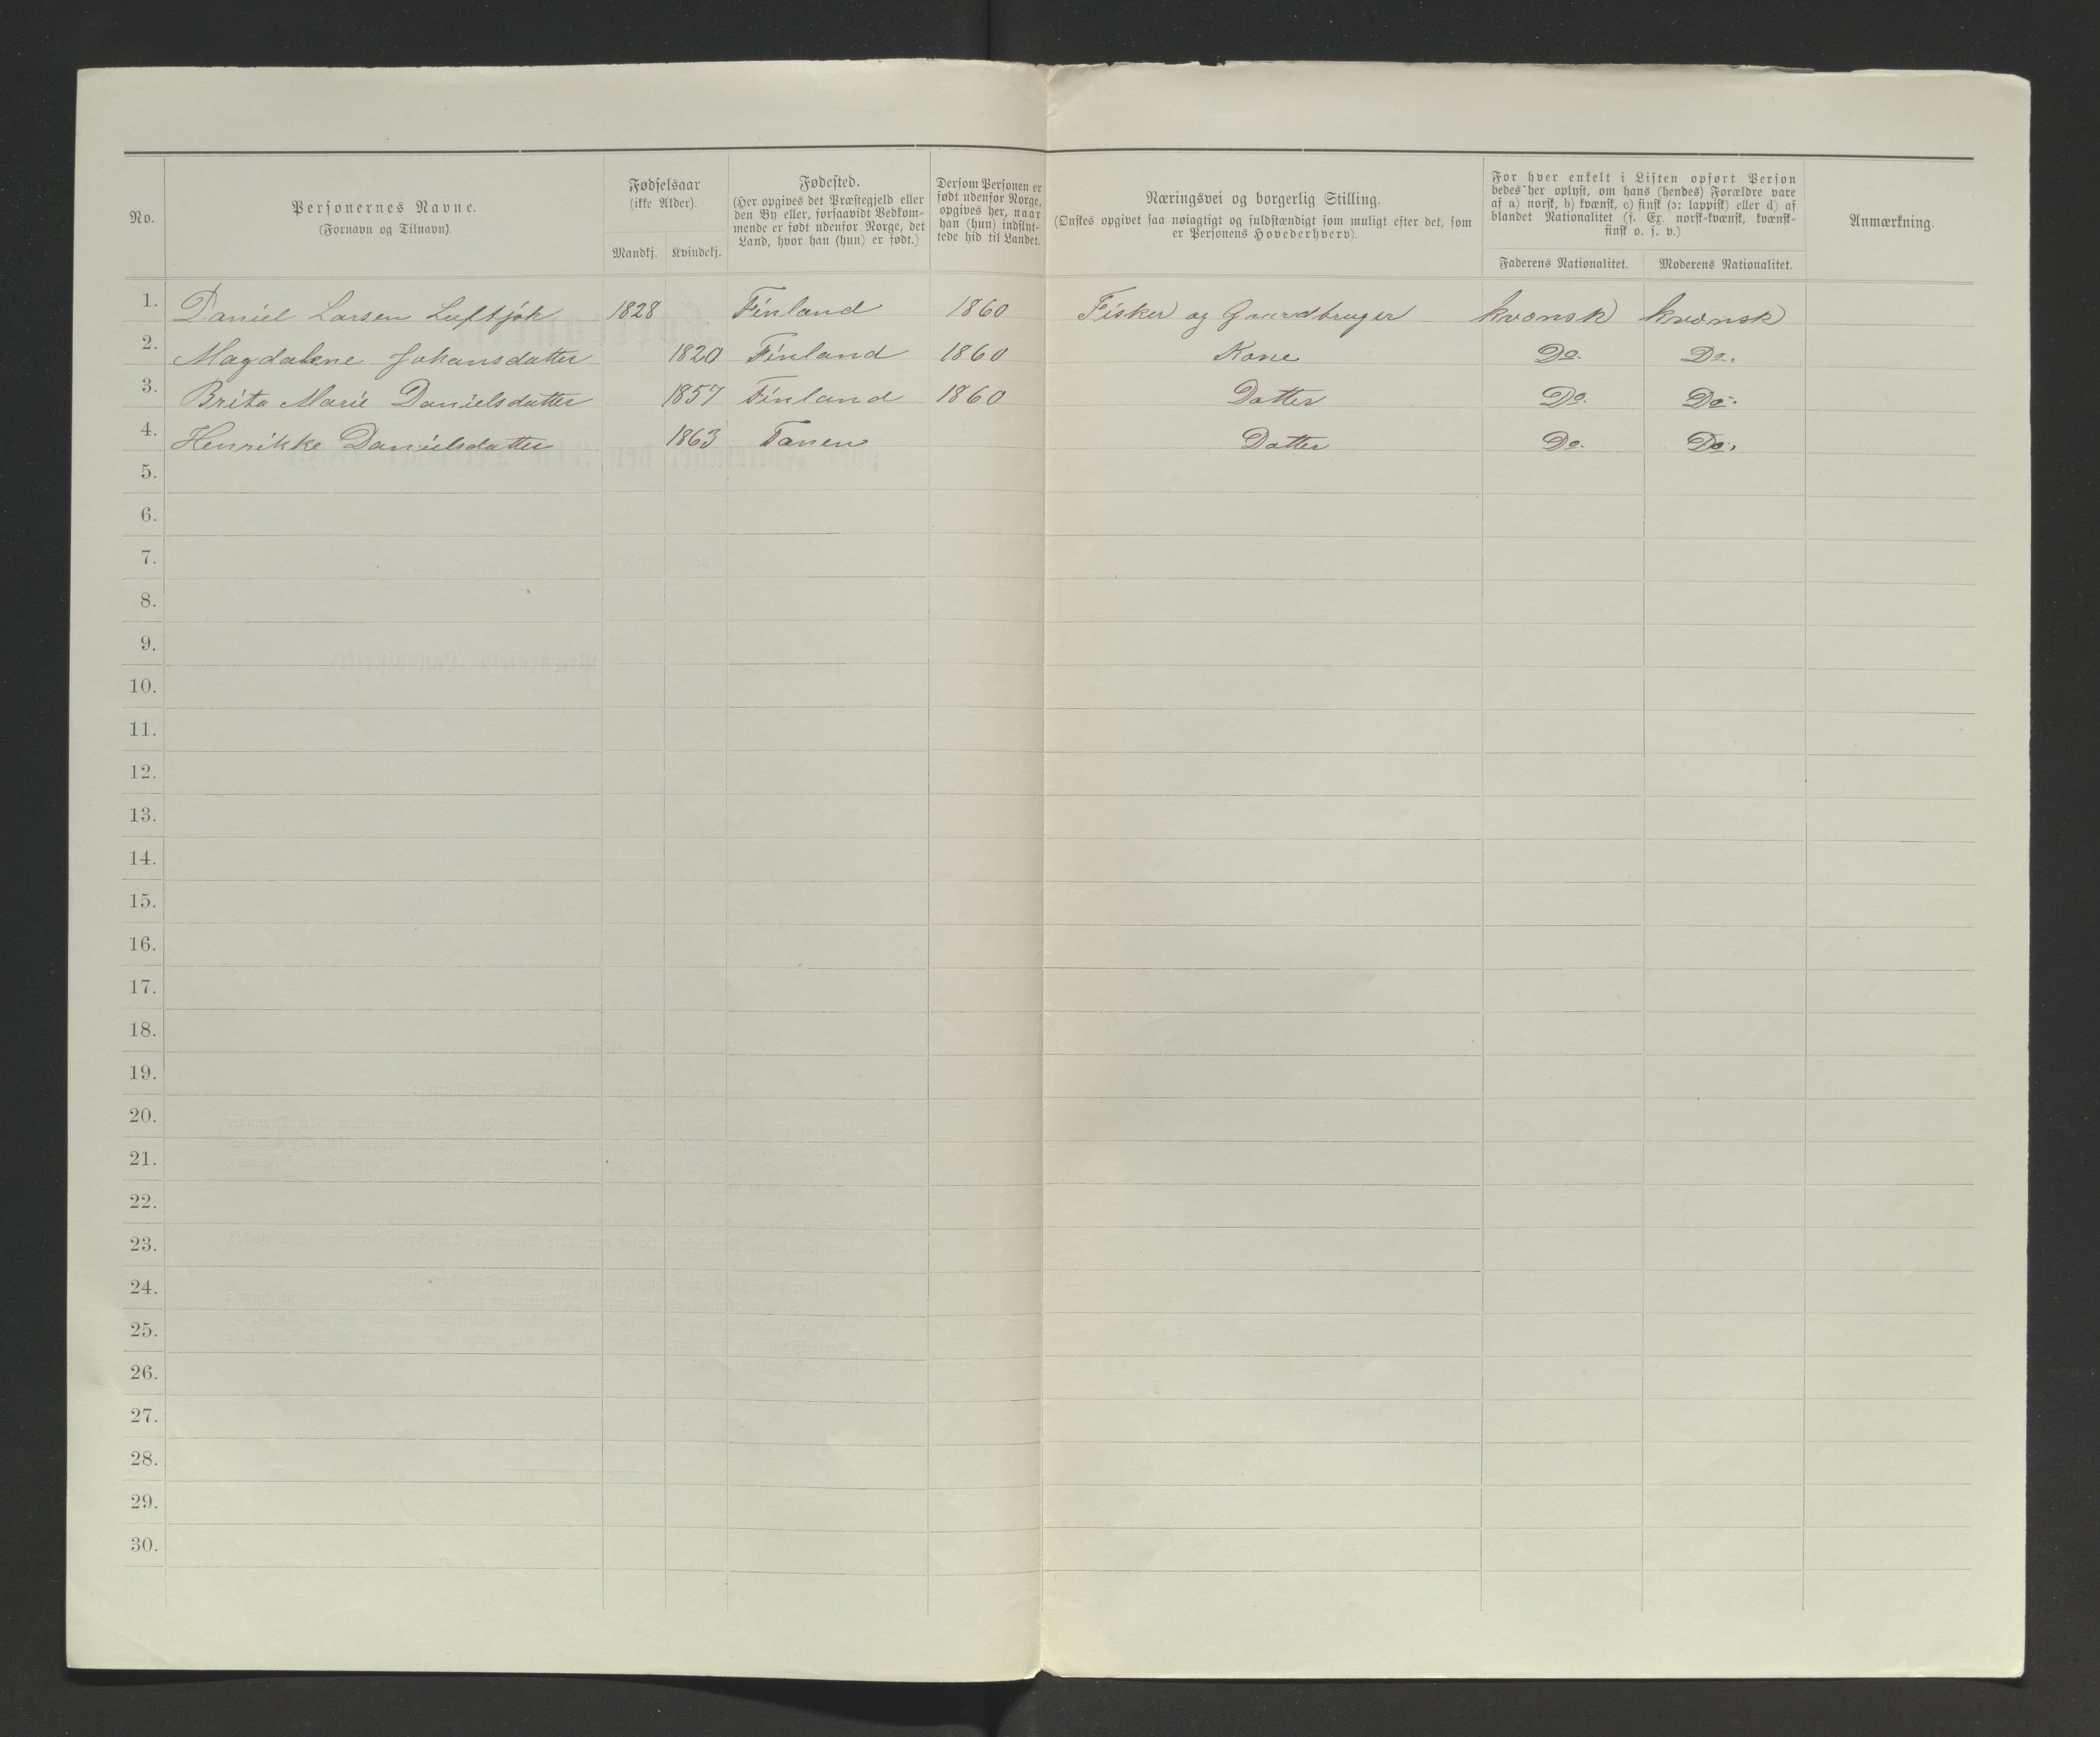 No.
Personernes Navne.
(Fornavn og Tilnavn).
Fødselsaar
(ikke Alder).
Mandkj. Kvindekj.
Fødested.
(Her opgives det Præstegjeld eller
den By eller, forsaavidt Vedkom-
mende er født udenfor Norge, det
Land, hvor han (hun) er født.)
Dersom Personen er
født udenfor Norge,
opgives her, naar
han (hun) indflyt-
tede hid til Landet.
Næringsvei og borgerlig Stilling.
(Ønskes opgivet saa nøiagtigt og fuldstændigt som muligt efter det, som
er Personens Hovederhverv).
For hver enkelt i Listen opført Person
bedes her oplyst, om hans (hendes) Forældre vare
af a) norsk, b) kvænsk, c) finsk (ɔ: lappisk) eller d) af
blandet Nationalitet (f. Ex. norsk-kvænsk, kvænsk-
finsk o. s. v.)
Faderens Nationalitet. Moderens Nationalitet.
Anmærkning.
1. Daniel Larsen Luftjok 1828 Finland 1860 Fisker og Gaardbruger kvænsk kvænsk
2. Magdalene Johansdatter 1820 Finland 1860 Kone Do. Do.
3. Brita Marie Danielsdatter 1857 Finland 1860 Datter Do. Do.
4. Henrikke Danielsdatter 1863 Tanen Datter Do. Do.
5.
6.
7.
8.
9.
10.
11.
12.
13.
14.
15.
16.
17.
18.
19.
20.
21.
22.
23.
24.
25.
26.
27.
28.
29.
30.